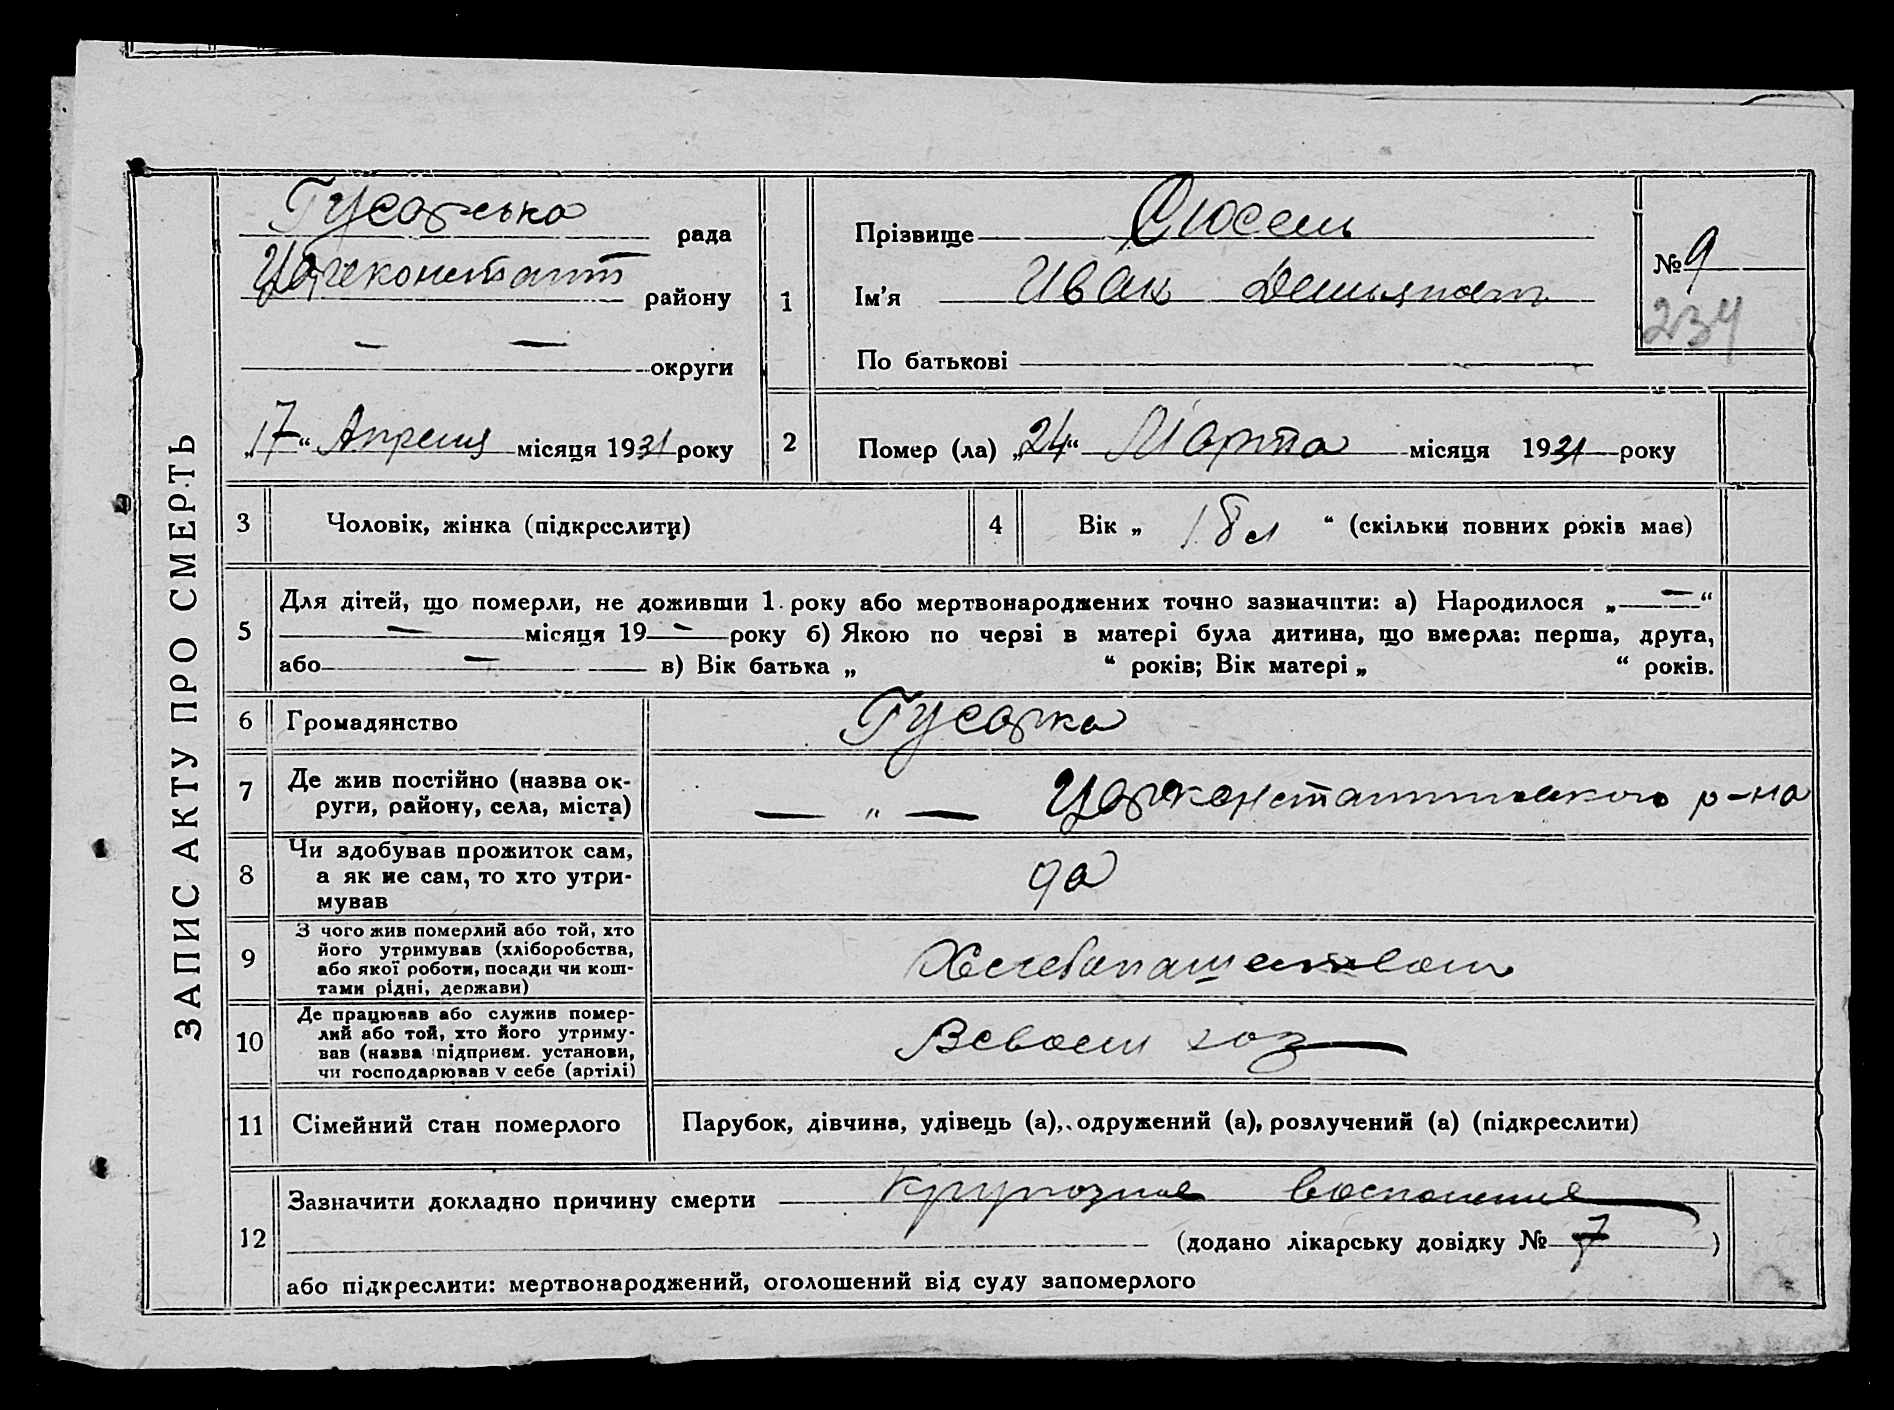 ЗАПИС АКТУ ПРО СМЕРТЬ
Гусарська рада
Цареконстант району
— — округи
„17“ Апреля місяця 1931 року
1
Прізвище Сюсель
Ім'я Иван
По батькові
№ 9
234
2 Помер (ла) „24“ Марта місяця 1931 року
3 Чоловік, жінка (підкреслити)
4 Вік „ 18 л “ (скільки повних років має)
5 Для дітей, що померли, не доживши 1 року або мертвонароджених точно зазначити: а) Народилося „—“
— місяця 19 — року б) Якою по черві в матері була дитина, що вмерла: перша, друга,
або — в) Вік батька „ “ років; Вік матері „ “ років.
6 Громадянство Гусарка
7 Де жив постійно (назва ок-
руги, району, села, міста) — „ — Царконстантиновского р-на
8 Чи здобував прожиток сам,
а як не сам, то хто утри-
мував
да
9 З чого жив померлий або той, хто
його утримував (хліборобства,
або якої роботи, посади чи кош-
тами рідні, держави)
Хлебопашеством
10 Де працював або служив помер-
лий або той, хто його утриму-
вав (назва підприєм. установи,
чи господарював у себе (артілі)
В своем хоз
11 Сімейний стан померлого Парубок, дівчина, удівець (а), одружений (а), розлучений (а) (підкреслити)
12 Зазначити докладно причину смерти крупозное воспаление
(додано лікарську довідку № 7 )
або підкреслити: мертвонароджений, оголошений від суду запомерлого